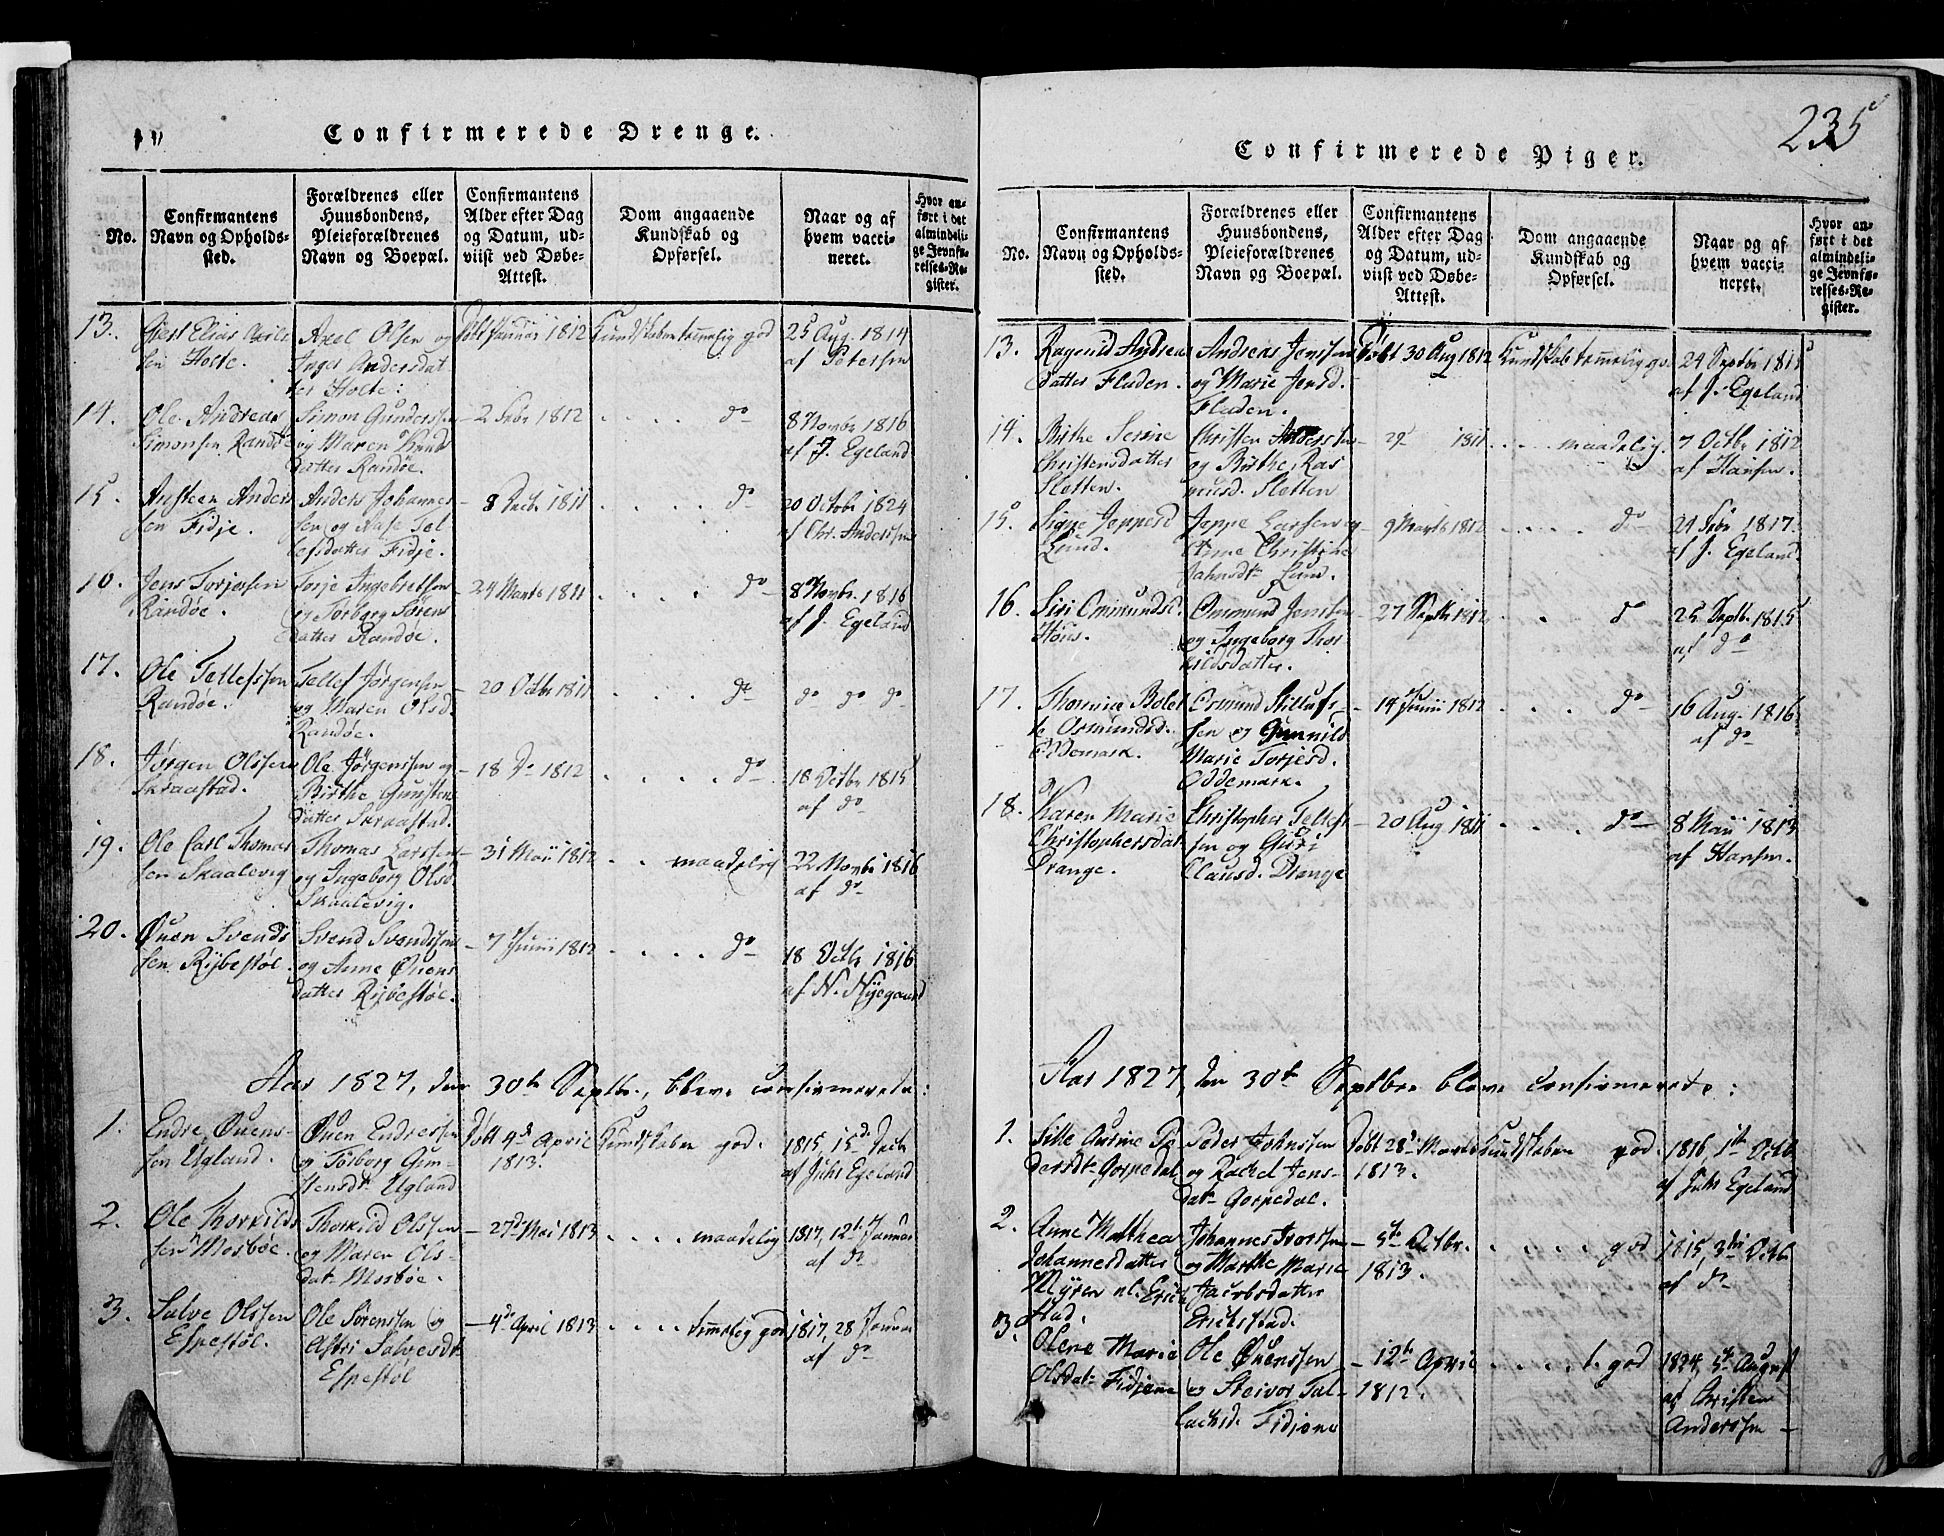 Confirmerede Drenge.
No.
Confirmantens
Navn og Opholds-
sted.
Forældrenes eller
Huusbondens,
Pleieforældrenes
Navn og Boepæl.
Confirmantens
Alder efter Dag
og Datum, ud-
viist ved Døbe-
Attest.
Dom angaaende
Kundskab og
Opførsel.
Naar og af
hvem vacci-
neret.
Hvor an-
ført i det
almindeli-
ge Jevnfø-
relses-Re-
gister.
13. Elias
sen Holte.
Axel Olsen og
Inger Andersdat
ter Holte.
Døbt Januar 1812
Kundskaben temmelig god
25 Aug. 1814
af Petersen
14. Ole Andreas
Simonsen Randøe
Simon Gunderssen
og Maren
datter Randøe.
- 2 1812
. . . do
8 Novbr 1816
af J. Egeland
15. Ansteen Anders
sen Fidje.
Anders Johannes
sen og Aase Tel
lefsdatter Fidje.
- 8 Decbr 1811
. . . . do
20 Octobr 1824
af Chr. Anderssen
16. Jens Torjessen
Randøe.
Torje Ingebretsen
og Torborg Sørens
datter Randøe.
- 24 Marts 1811
. . . . do
8 Novbr. 1816
af J. Egeland
17. Ole Tellefssen
Randøe.
Tellef Jørgensen
og Maren Olsd.
Randøe.
- 20 Octbr 1811
. . . do
do do do
18. Jørgen Olssen
Skraastad.
Ole Jørgenssen og
Birthe Gunsten
datter Skraastad.
- 18 do 1812
. . . . do
18 Octbr 1815
af do
19. Ole Carl Thomas
sen Skaalevig
Thomas Larssen
og Ingeborg Olsd.
Skaalevig.
- 31 Maii 1812
. . maadelig
22 Novbr 1816
af do
20. Øuen Svends
sen Rybestøl.
Svend Svendssen
og Anne Øuens
datter Rybestøl.
- 7 Junii 1812
. . . . do
18 Octb. 1816
af N. Nyegaard
Aar 1827, den 30te Septbr., bleve confirmerede:
1. Endre Øuens-
sen Ugland.
Øuen Endressen
og Torborg Gun-
stensdt. Ugland
Døbt 4de April
1813.
Kundskaben god.
1815, 15de Decbr
af Johs Egeland
2. Ole Thorkilds
sen Mosbøe.
Thorkild Olssen
og Maren Ols-
dat. Mosbøe.
- 27de Mai 1813
. . . . maadelig
1817, 12te Januar
af do
3. Salve Olssen
Espestøl.
Ole Sørenssen og
Astri Salvesdt.
Espestøl
- 4de April 1813
. . . . temmelig god
1817, 28 Januar
af do
235
Confirmerede Piger.
No.
Confirmantens
Navn og Opholds-
sted.
Forældrenes eller
Huusbondens,
Pleieforældrenes
Navn og Boepæl.
Confirmantens
Alder efter Dag
og Datum, ud-
viist ved Døbe-
Attest.
Dom angaaende
Kundskab og
Opførsel.
Naar og af
hvem vacci-
neret.
Hvor an-
ført i det
almindeli-
ge Jevnfø-
relses-Re-
gister.
13. Ragnild Andreas
datter Fluden.
Andreas Jenssen
og Marie Jensd.
Fluden.
Døbt 30 Aug 1812
Kundskab temmelig god
24 Septbr 1815
af J. Egeland
14. Birthe Serine
Christensdatter
Sletten.
Christen Anderssen
og Birthe Ras
musd. Sletten
- 29 1811
. . . . maadelig.
7 Octbr 1812
af Hansen.
15. Signe Jeppesd
Lund.
Jeppe Larsen og
Anne Christine
Lund.
- 9 Marts 1812
. . . . do
24 1817.
af J. Egeland.
16. Siri Omundsd.
Høus.
Ommund Jonssen
og Ingeborg Thor
kildsdatter.
- 27 Septbr 1812
. . do
25 Septb. 1815
af do
17. Thomine Bolet
te Osmundsd.
Oddemark.
Osmund
sen og Gunnild
Marie Torjesd.
Oddemark.
- 14 Junii 1812
. . . do
16 Aug. 1816
af do
18. Karen Marie
Christophersdat.
Drange.
Christopher Tellef-
sen og Guri
Clausd. Drange
- 20 Aug 1811
. . . . do
8 Maii 1813
af Hansen.
Aar 1827, den 30te Septbr bleve confirmerede:
1. Sille Aurine Pe
dersdt. Gorpedal
Peder Johnssen
og Rachel Jens-
dat. Gorpedal.
Døbt 28de Marts
1813.
Kundskaben god.
1816, 1te Octb
af Johs Egeland
2. Anne Malthea
Johannesdatter
Myren nl. Erick
stad.
Johannes Iverssen
og Marthe Marie
Jacobsdatter
Erickstad.
- 5te Octbr.
1813.
. . . . . god
1815, 3die Octb
af do
3. Olene Marie
Olsdat. Fidjane
Ole Øuenssen
og Steivor Tal-
lachsd. Fidjane
- 12te April
1812.
. . . . t. god
1824, 5te August
af Christen
Anderssen -